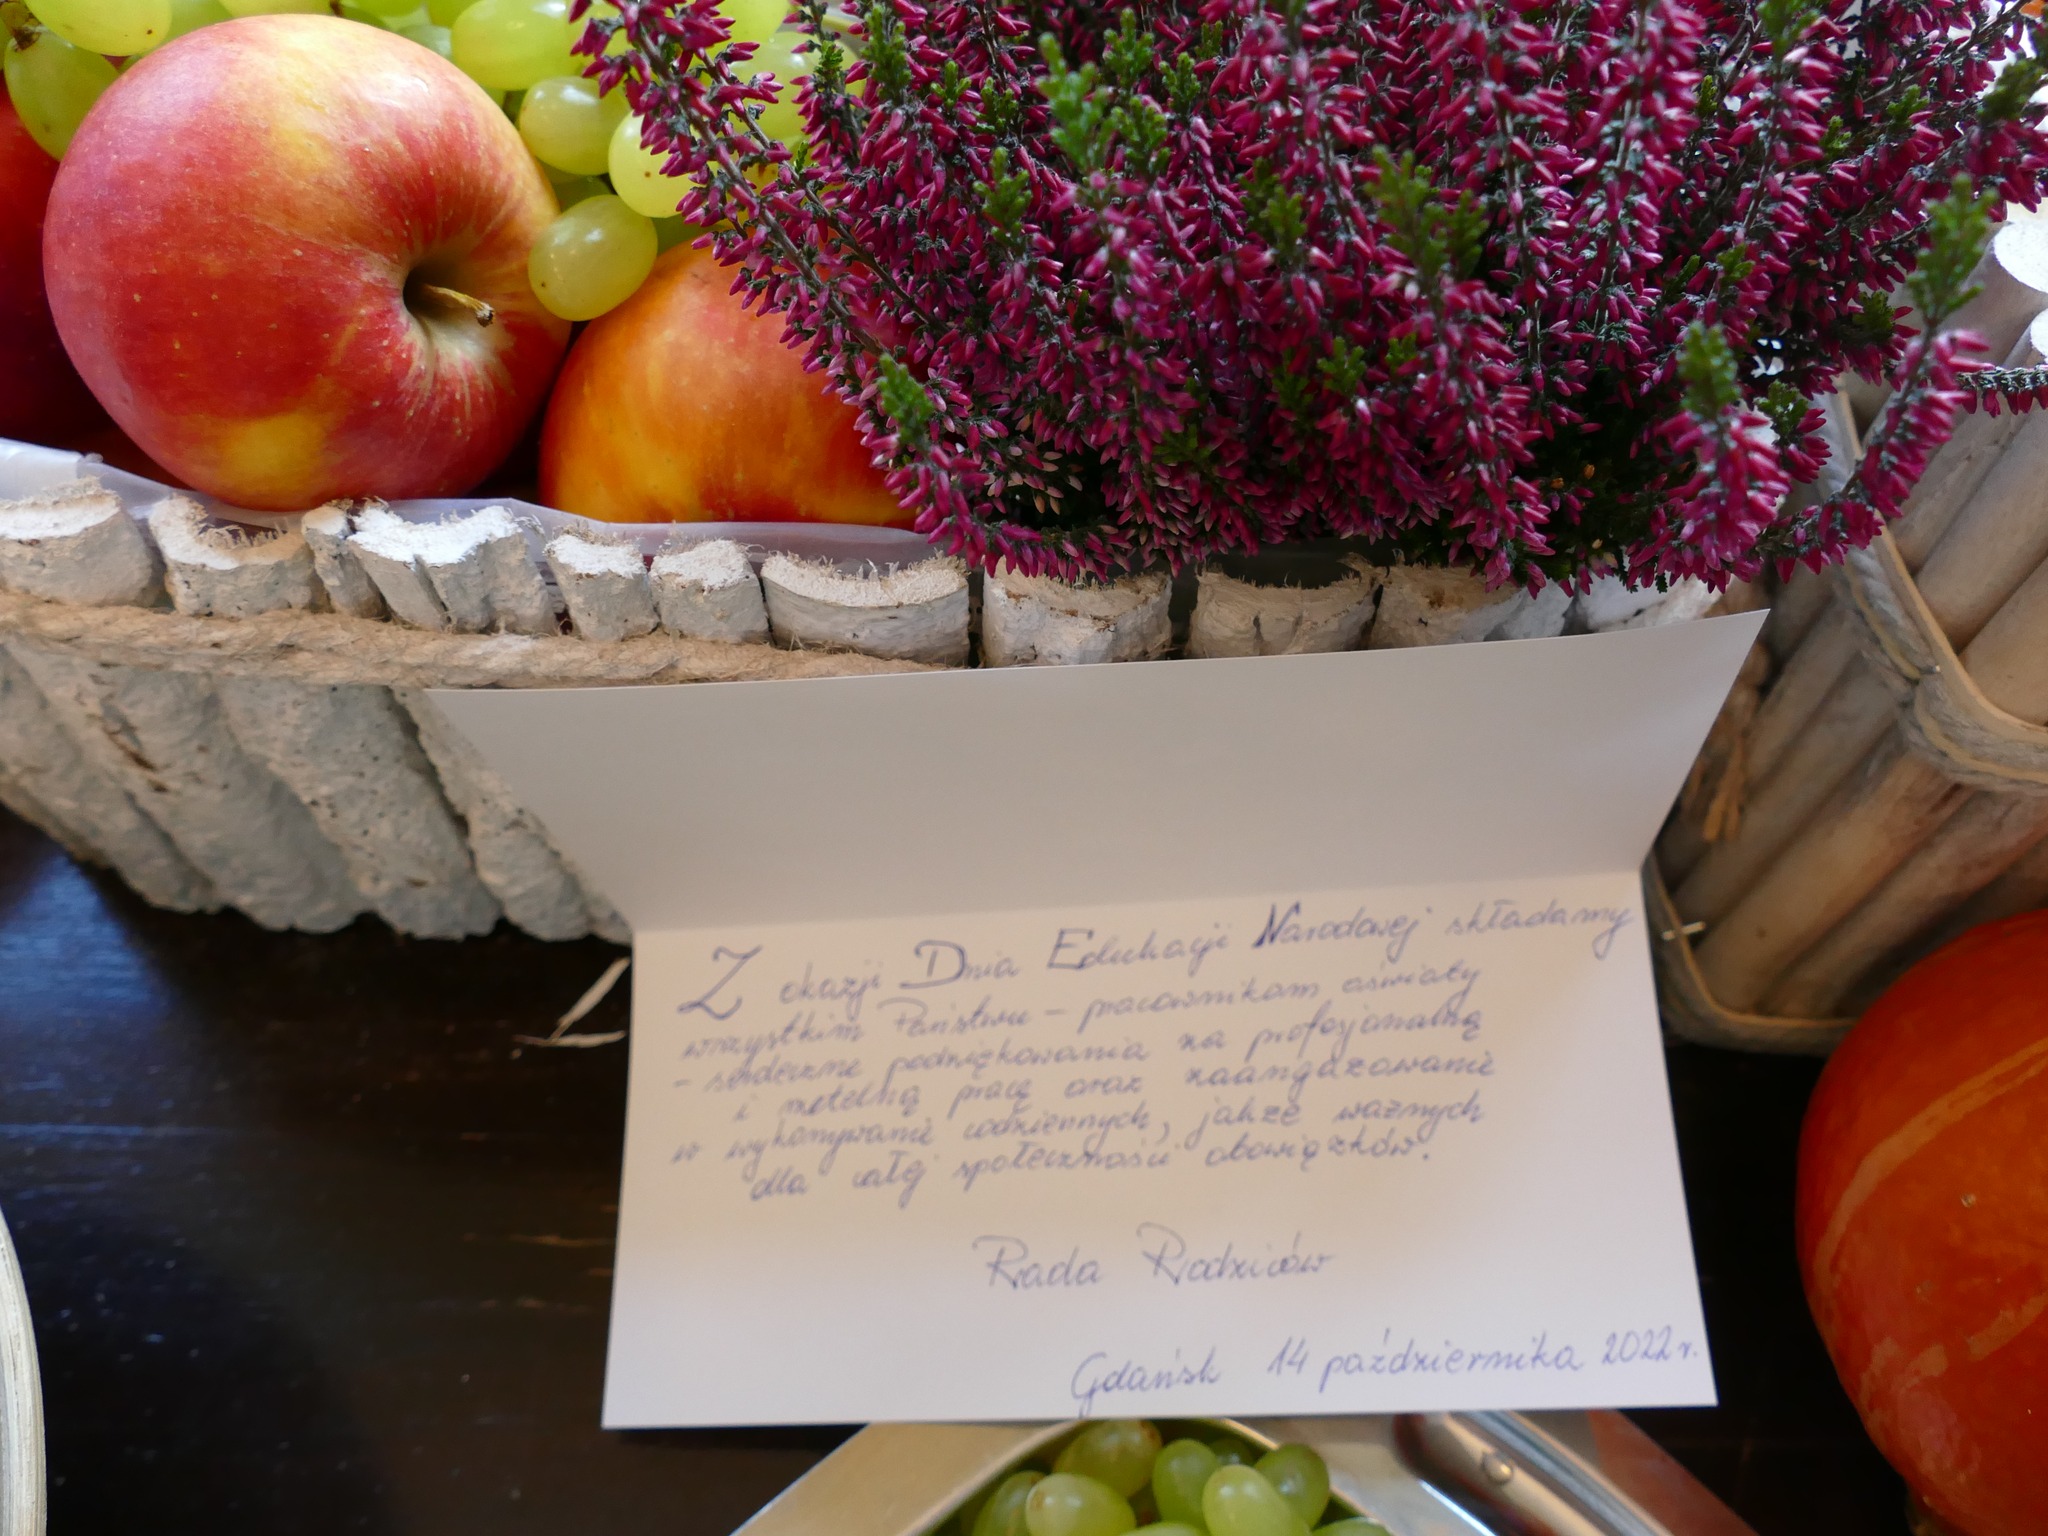 Z okazji Dnia Edukacji Narodowej składamy
wszystkim Państwu - pracownikom oświaty
- serdeczne podziękowania za profesjonalną
i rzetelną pracę oraz zaangażowanie
w wykonywanie codziennych, jakże ważnych
dla całej społeczności obowiązków.
Rada Rodziców
Gdańsk 14 października 2022 r.